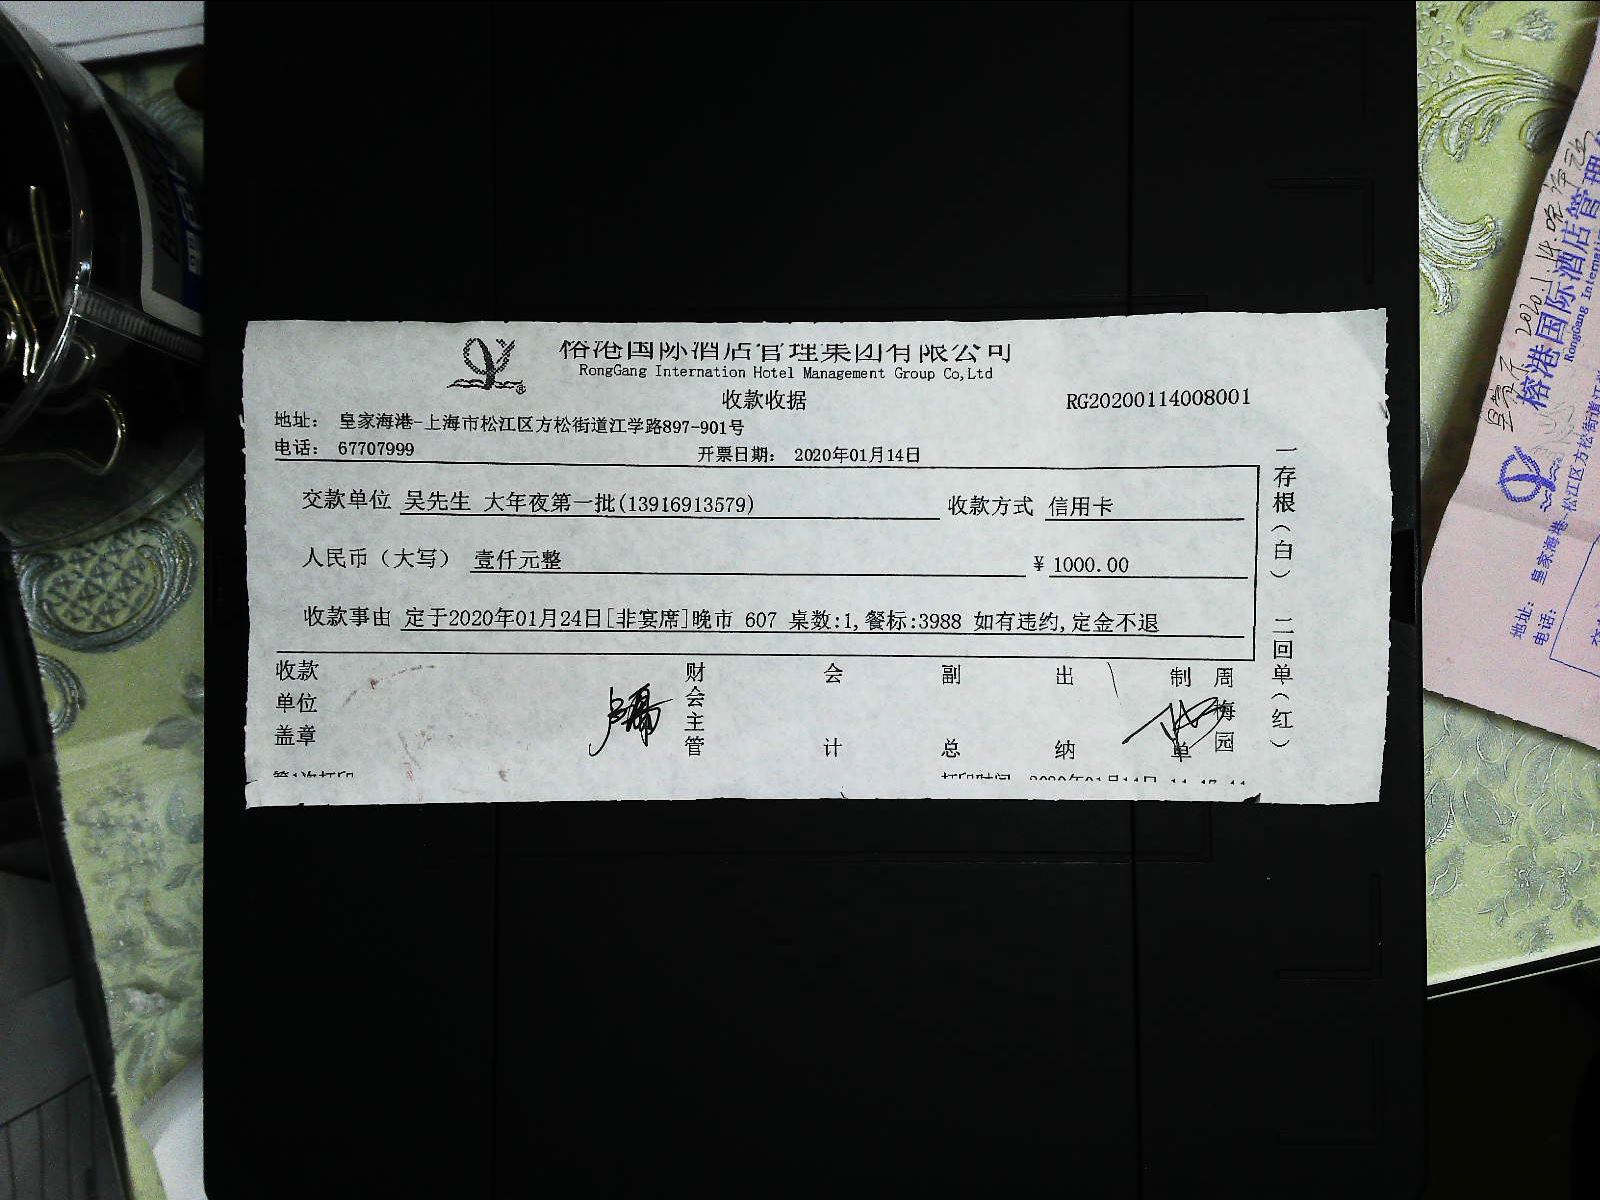 榕港国际酒店管理集团有限公司
RongGang Internation Hotel Management Group Co,Ltd
收款收据
RG20200114008001
地址： 皇家海港-上海市松江区方松街道江学路897-901号
电话： 67707999
开票日期： 2020年01月14日
交款单位 吴先生 大年夜第一批(13916913579) 收款方式 信用卡
人民币（大写） 壹仟元整 ¥ 1000.00
收款事由 定于2020年01月24日[非宴席]晚市 607 桌数:1,餐标:3988 如有违约,定金不退
收款单位盖章 财会主管 会计 副总 出纳 制单 周梅园
一存根（白） 二回单（红）
第1次打印
打印时间 2020年01月14日
榕港国际酒店管理
RongGang Internati
地址： 皇家海港-松江区方松街道江
电话：
2020.1.14.